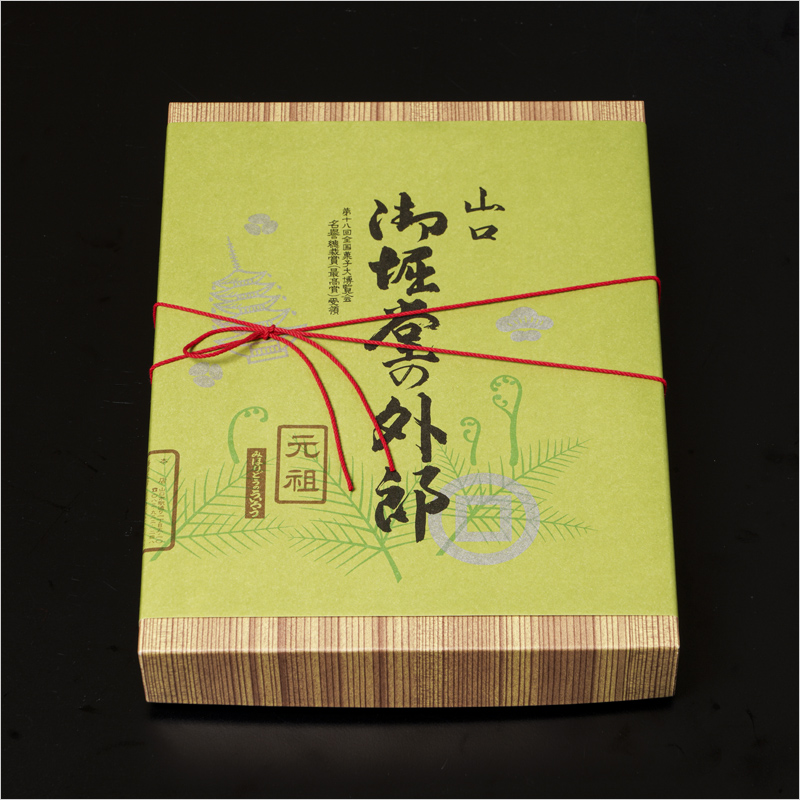 山口
御堀堂の外郎
第十八回全国菓子大博覧会
名誉総裁賞(最高賞)受領
元祖
みほりどうのういろう